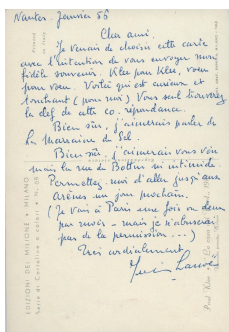 Nantes. Janvier 56
Cher ami.
Je venais de choisir cette carte
avec l'intention de vous envoyer mon
fidèle souvenir. Klee pour Klee, voeu
pour voeu. Voilà qui est curieux et
touchant (pour moi) Vous seul trouverez
la clef de cette co-répondance.
Bien sûr, j'aimerais parler de
la Marraine du Sel.
Bien sûr j'aimerais vous voir
mais la rue de Bottin m'intimide.
Permettez-moi d'aller jusqu'aux
Arènes un jour prochain.
(Je vais à Paris une fois ou deux
par mois - mais je n'abuserai
pas de la permission...)
Très cordialement,
EDIZIONI DEL MILIONE • MILANO
Serie di Cartoline a colori • N.
Paul Klee